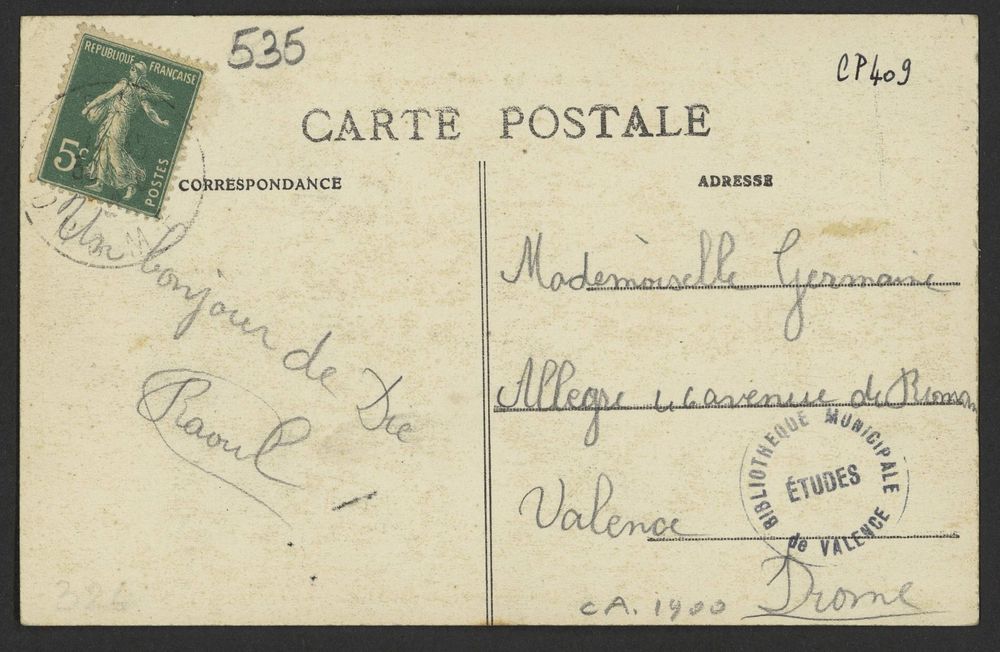 RÉPUBLIQUE FRANÇAISE
5c
POSTES
535
CP409
CARTE POSTALE
CORRESPONDANCE
ADRESSE
Un bonjour de Die
Raoul
Mademoiselle Germaine
Allegre avenue de Romans
Valence
Drome
BIBLIOTHEQUE MUNICIPALE
ÉTUDES
de VALENCE
CA. 1900
326